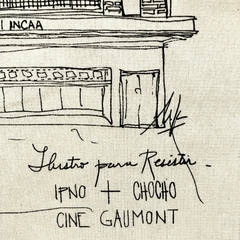 INCAA
Ilustro para Resistir -
IPNO + CHOCHO
CINE GAUMONT